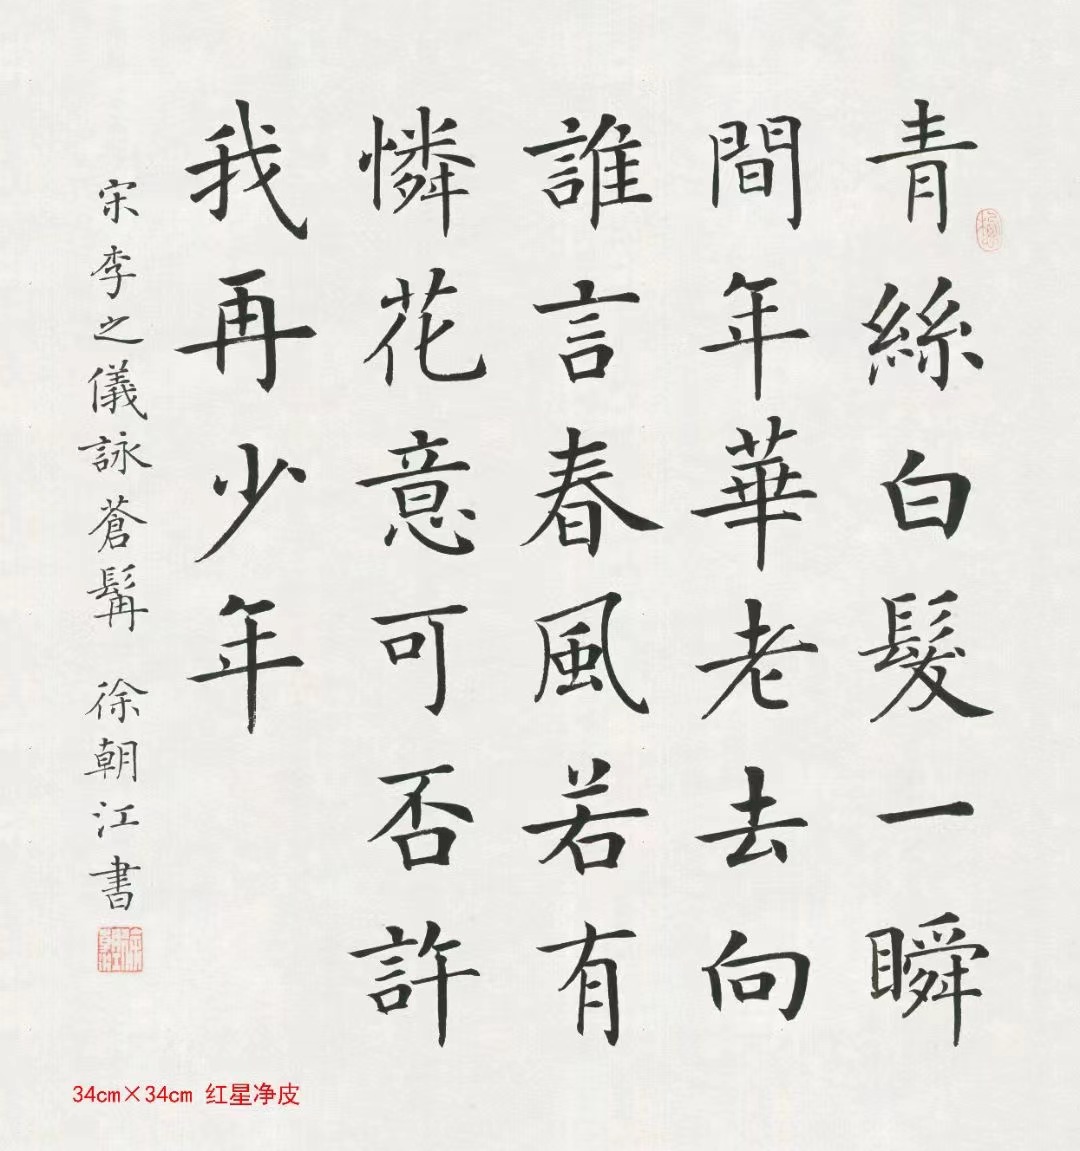 青絲白髮一瞬
間年華老去向
誰言春風若有
憐花意可否許
我再少年
宋李之儀詠蒼髯 徐朝江書
34cm×34cm 红星净皮